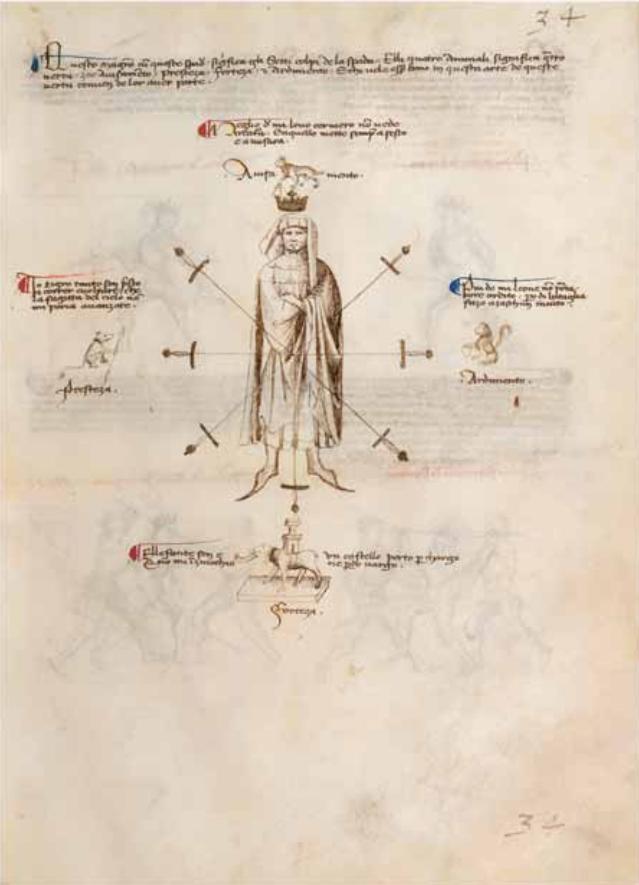 34
Questo magro cum queste spade significa gli Setti colpi de la spada. Elli quatro animali significa qtro
vertu. zoe avisamento. Presteza. Forteza. & Ardimento. E chi vole essere bono in questa arte de queste
vertu conven de lor aver parte.
Meglio de mi lovo cervero no vede
creatura. E aquello metto semp a sesto
e a misura.
Avisa mento.
Io tigro tanto son psto
a correr e voltare che
la sagitta del cielo no
mi poria avanzare.
Presteza.
Piu de mi leone no porta
core ardito. di bataglia
fazo a zaschun invito.
Ardimento.
Ellefante son e un castello porto p chargo
E no mi inzenochio ne pdo vargo.
Forteza.
34